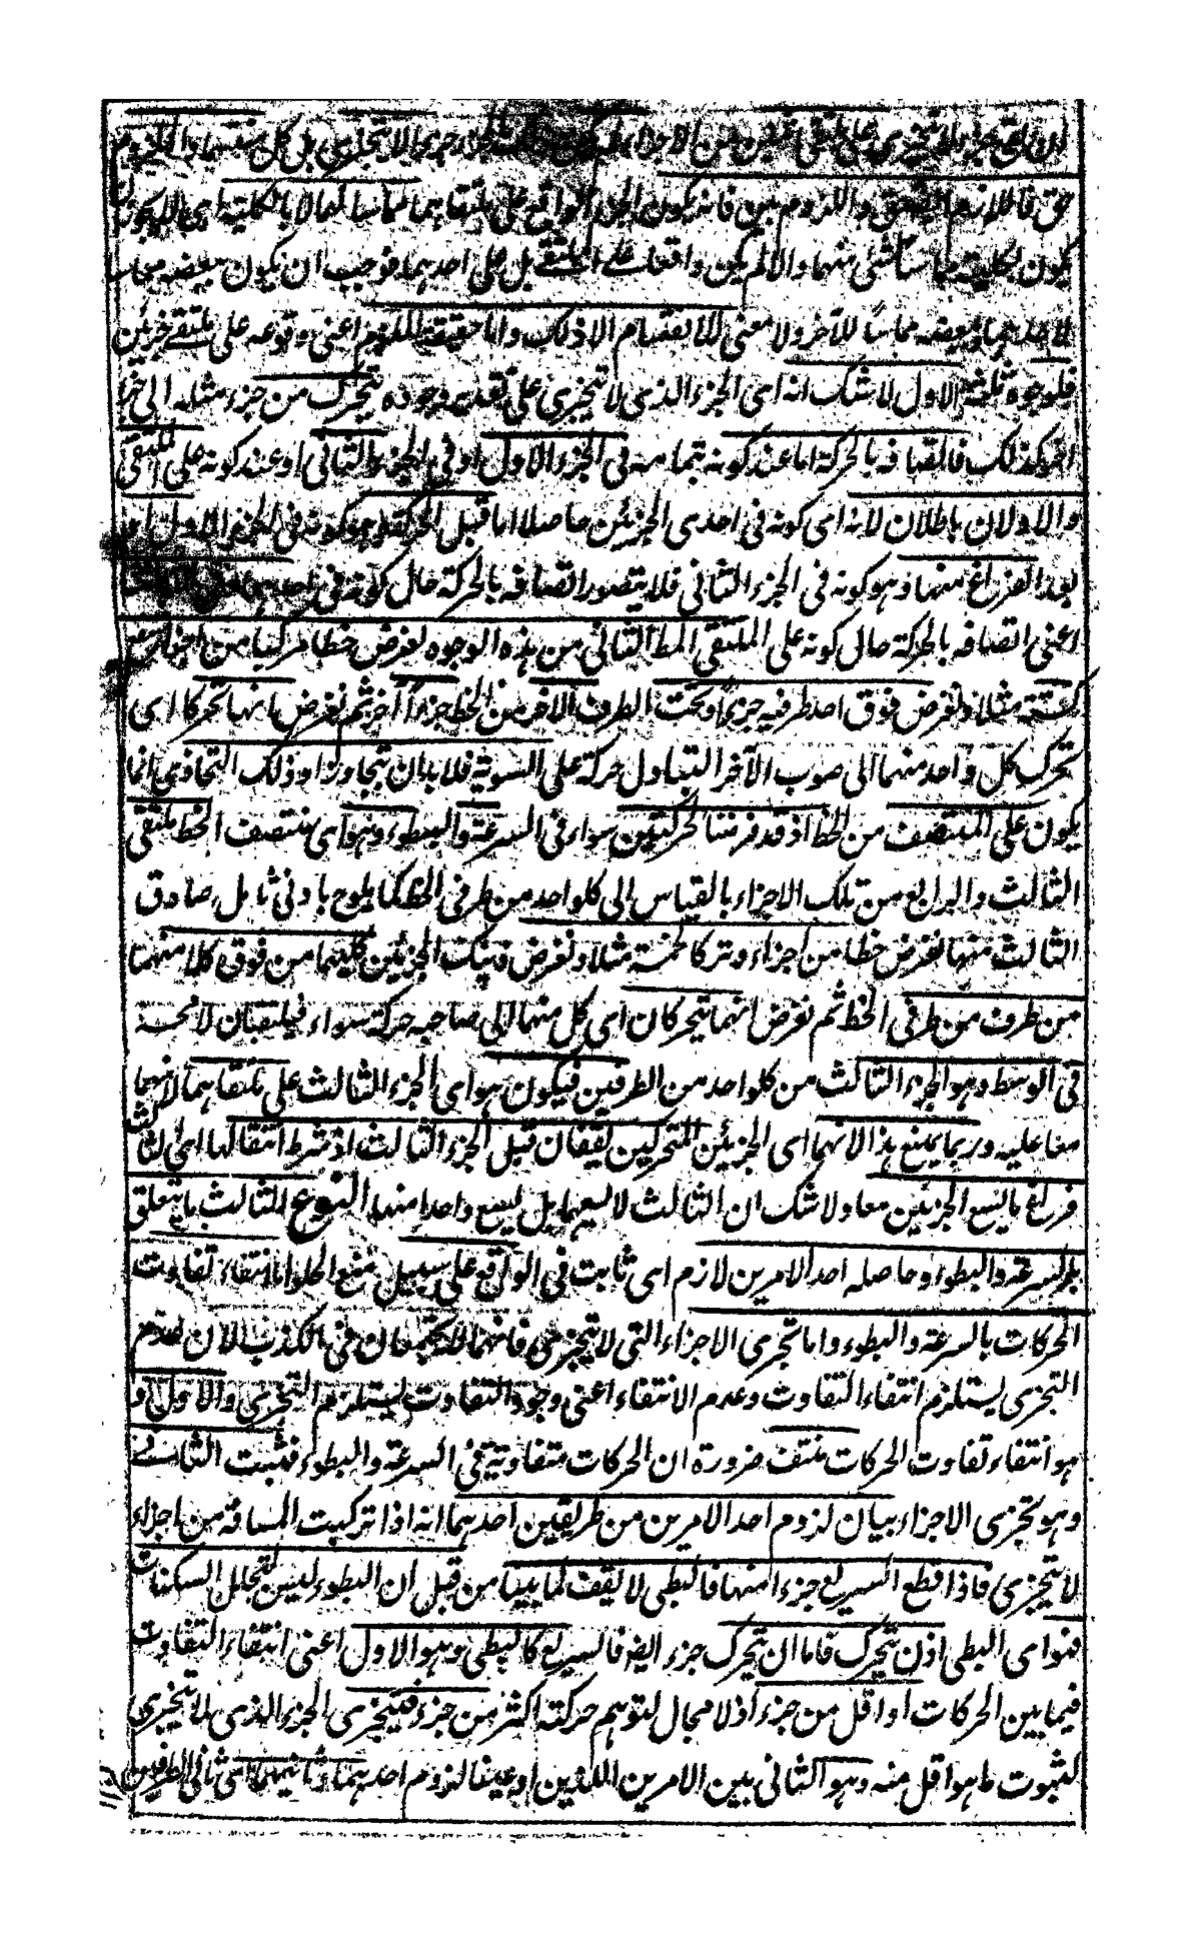 جزء لا يتجزى على ملتقى من الاجزاء لا يتجزى بل كل
حق فالملازم واللزوم بين فانه يكون الجزء الواقع على ملتقاهما مماسا لهما لا بالكلية اى لا يجوز ان
يكون بكليته مماسا لشئ منهما والا لم يكن واقعا على الملتقى بل على احدهما فوجب ان يكون ببعضه مماسا
لاحدهما وببعضه مماسا للآخر ولا معنى للانقسام الا ذلك واما حقيقة الملزوم اعنى وقوعه على ملتقى جزئين
فلوجوه ثلثة الاول لا شك انه اى الجزء الذى لا يتجزى على تقدير وجوده يتحرك من جزء مثله الى جزء
آخر كذلك فاتصافه بالحركة اما عند كونه بتمامه فى الجزء الاول او فى الجزء الثانى او عند كونه على الملتقى
والاولان باطلان لانه اى كونه فى احدى الجزئين حاصلا اما قبل الحركة وهو كونه فى الجزء الاول او
بعد الفراغ منها وهو كونه فى الجزء الثانى فلا يتصور اتصافه بالحركة حال كونه فى احدهما
اعنى اتصافه بالحركة حال كونه على الملتقى المط الثانى من هذه الوجوه نفرض خطا مركبا من اجزاء شفع
كستة مثلا ونفرض فوق احد طرفيه جزءا وتحت الطرف الآخر من الخط جزءا آخر ثم نفرض انهما تحركا اى
تحرك كل واحد منهما الى صوب الآخر التبادل حركة على السوية فلا بد ان يتجاوزا وذلك التحاذى انما
يكون على المنتصف من الخط اذ قد فرضنا الحركتين سواء فى السرعة والبطوء وهو اى منتصف الخط ملتقى
الثالث والرابع من تلك الاجزاء بالقياس الى كل واحد من طرفى الخط كما يلوح بادنى تامل صادق
الثالث منها نفرض خطا من اجزاء وتر كالخمسة مثلا ونفرض فينك الجزئين كليهما من فوق كلا منهما
من طرف من طرفى الخط ثم نفرض انهما يتحركان اى كل منهما الى صاحبه حركة سواء فيلتقيان لا محمة
فى الوسط وهو الجزء الثالث من كل واحد من الطرفين فيكون هو اى الجزء الثالث على ملتقاهما لا نهما
معا عليه وربما يمنع هذا لانهما اى الجزئين المتحركين يقفان قبل الجزء الثالث اذ شرط انتقالهما الى الثالث
فراغ ما يسع الجزئين معا ولا شك ان الثالث لا يسعهما بل يسع واحدا منهما النوع الثالث ما يتعلق
بالسرعة والبطوء وحاصله احد الامرين لازم اى ثابت فى الواقع على سبيل منع الخلو اما انتفاء تفاوت
الحركات بالسرعة والبطوء واما تجزى الاجزاء التى لا يتجزى فانهما لا يجتمعان فى الكذب لان عدم
التجزى يستلزم انتفاء التفاوت وعدم الانتفاء اعنى وجود التفاوت يستلزم التجزى والاول و
هو انتفاء تفاوت الحركات منتف ضرورة ان الحركات متفاوتة فى السرعة والبطوء فثبت الثانى
وهو تجزى الاجزاء بيان لزوم احد الامرين من طريقين احدهما انه اذا تركبت المسافة من اجزاء
لا يتجزى فاذا قطع السريع جزءا منها فالبطى لا يقف لما بينا من قبل ان البطوء ليس لتخلل السكنات
فهو اى البطى اذن يتحرك فاما ان يتحرك جزء ايضا فالسريع كالبطى وهو الاول اعنى انتفاء التفاوت
فيما بين الحركات او اقل من جزء اذ لا مجال لتوهم حركته اكثر من جزء فيتجزى الجزء الذى لا يتجزى
لثبوت ما هو اقل منه وهو الثانى بين الامرين اللذين ادعينا لزوم احدهما وثانيهما اى ثانى الطريقين